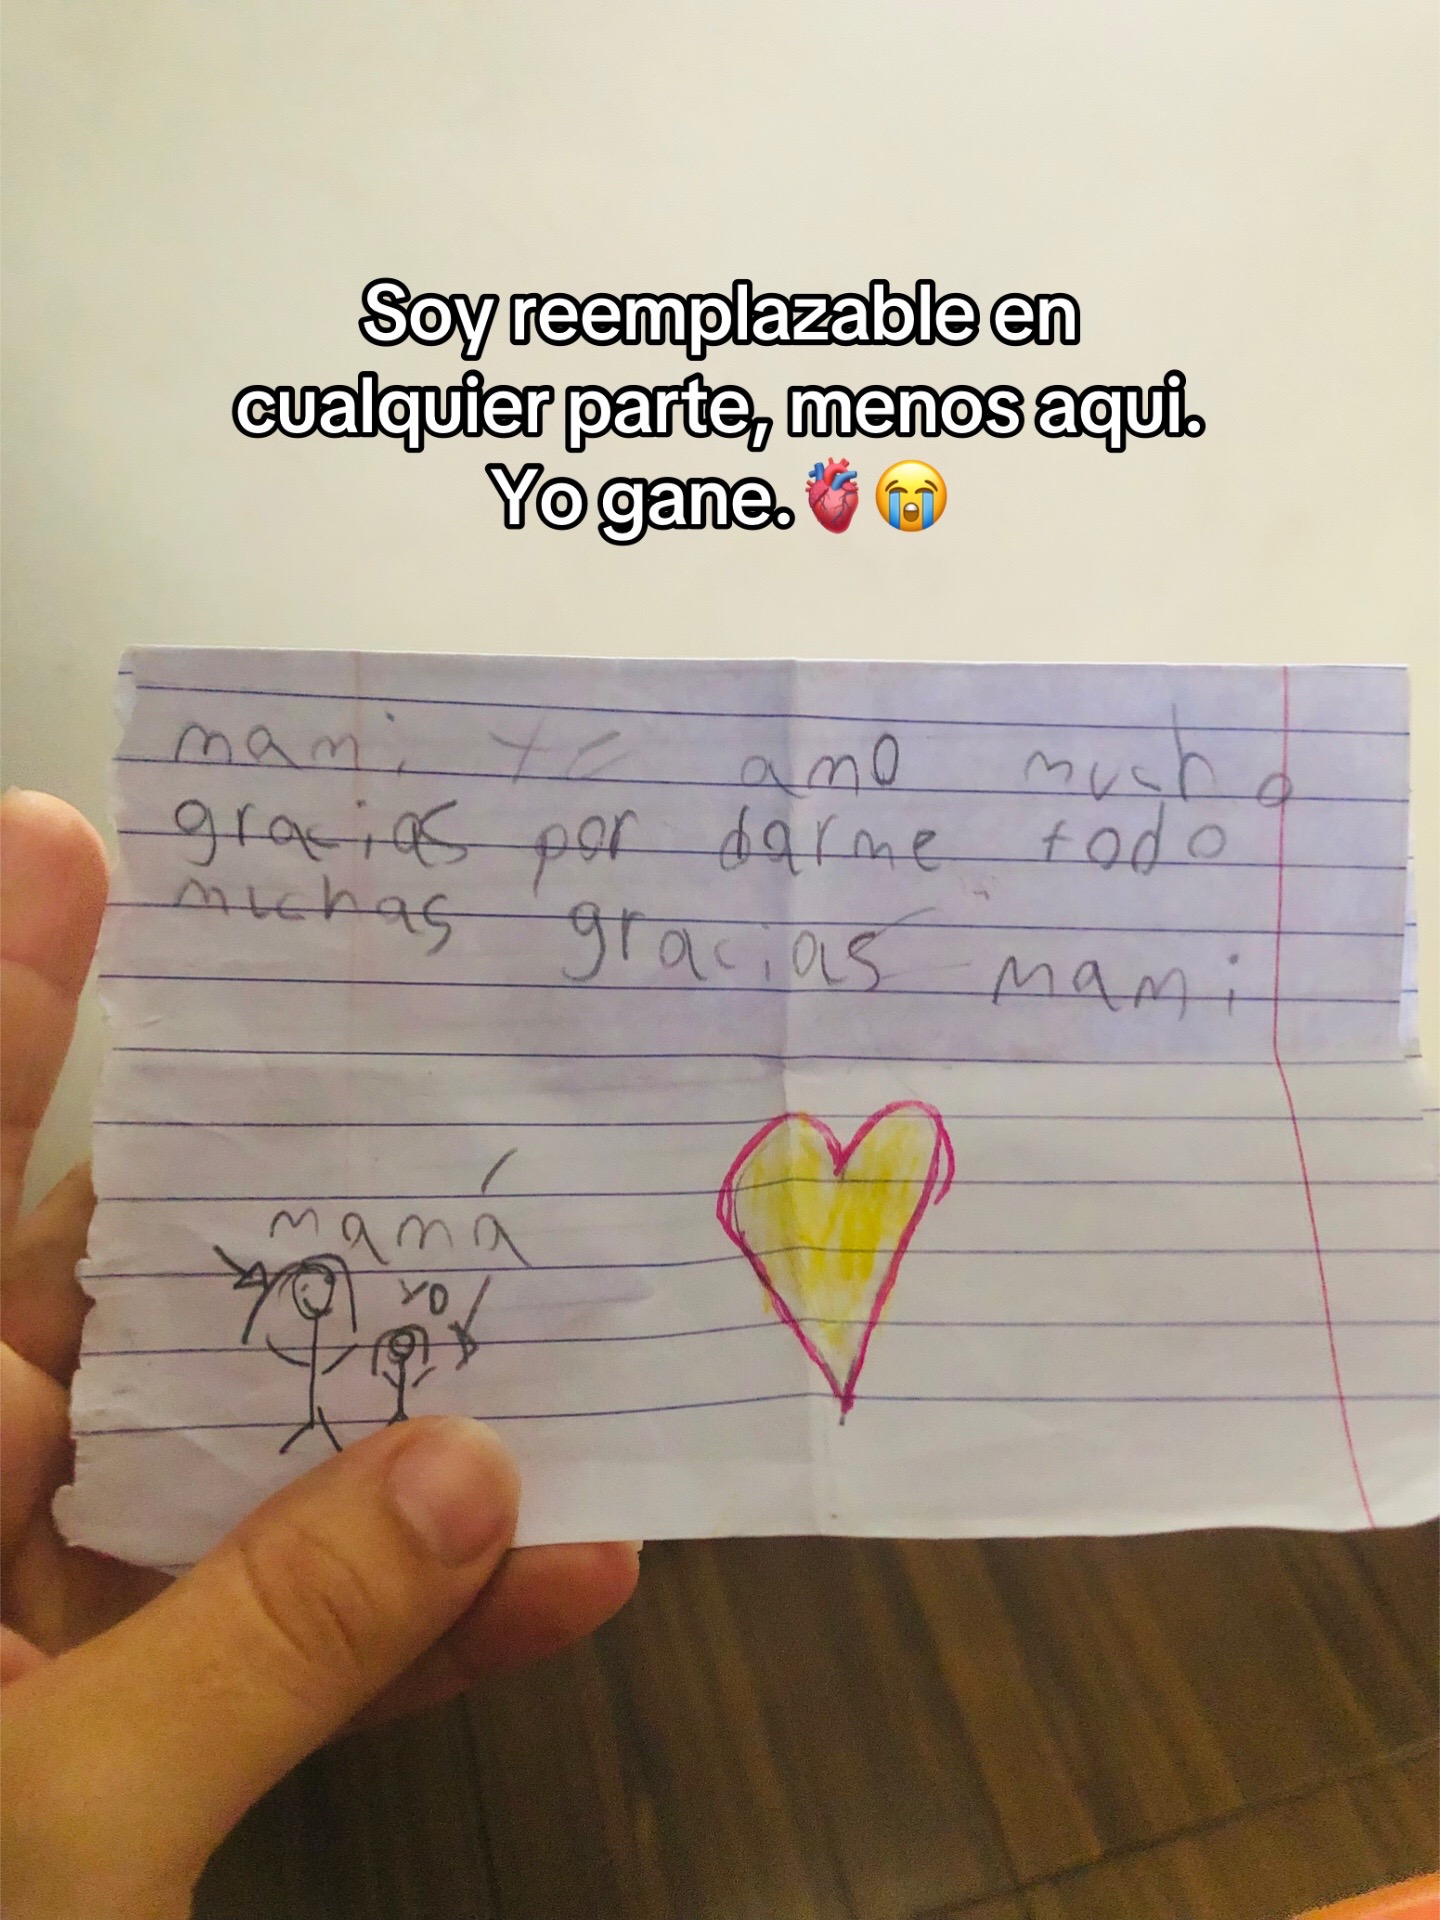 Soy reemplazable en
cualquier parte, menos aqui.
Yo gane.🫀😭
mami te amo mucho
gracias por darme todo
muchas gracias mami
mamá
yo